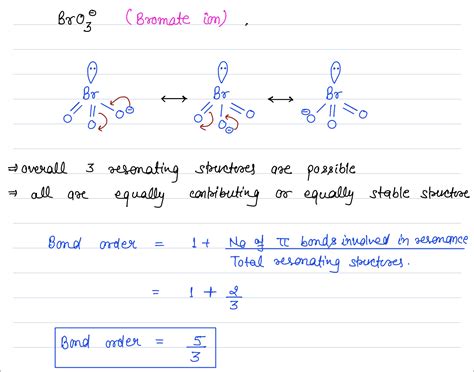 BrO3⊖ (Bromate ion).
Br ↔ Br ↔ Br
O O O⊖ O O⊖ O ⊖O O O
⇒ overall 3 resonating structures are possible
⇒ all are equally contributing or equally stable structure
Bond order = 1 + No of π bonds involved in resonance / Total resonating structures.
= 1 + 2/3
Bond order = 5/3